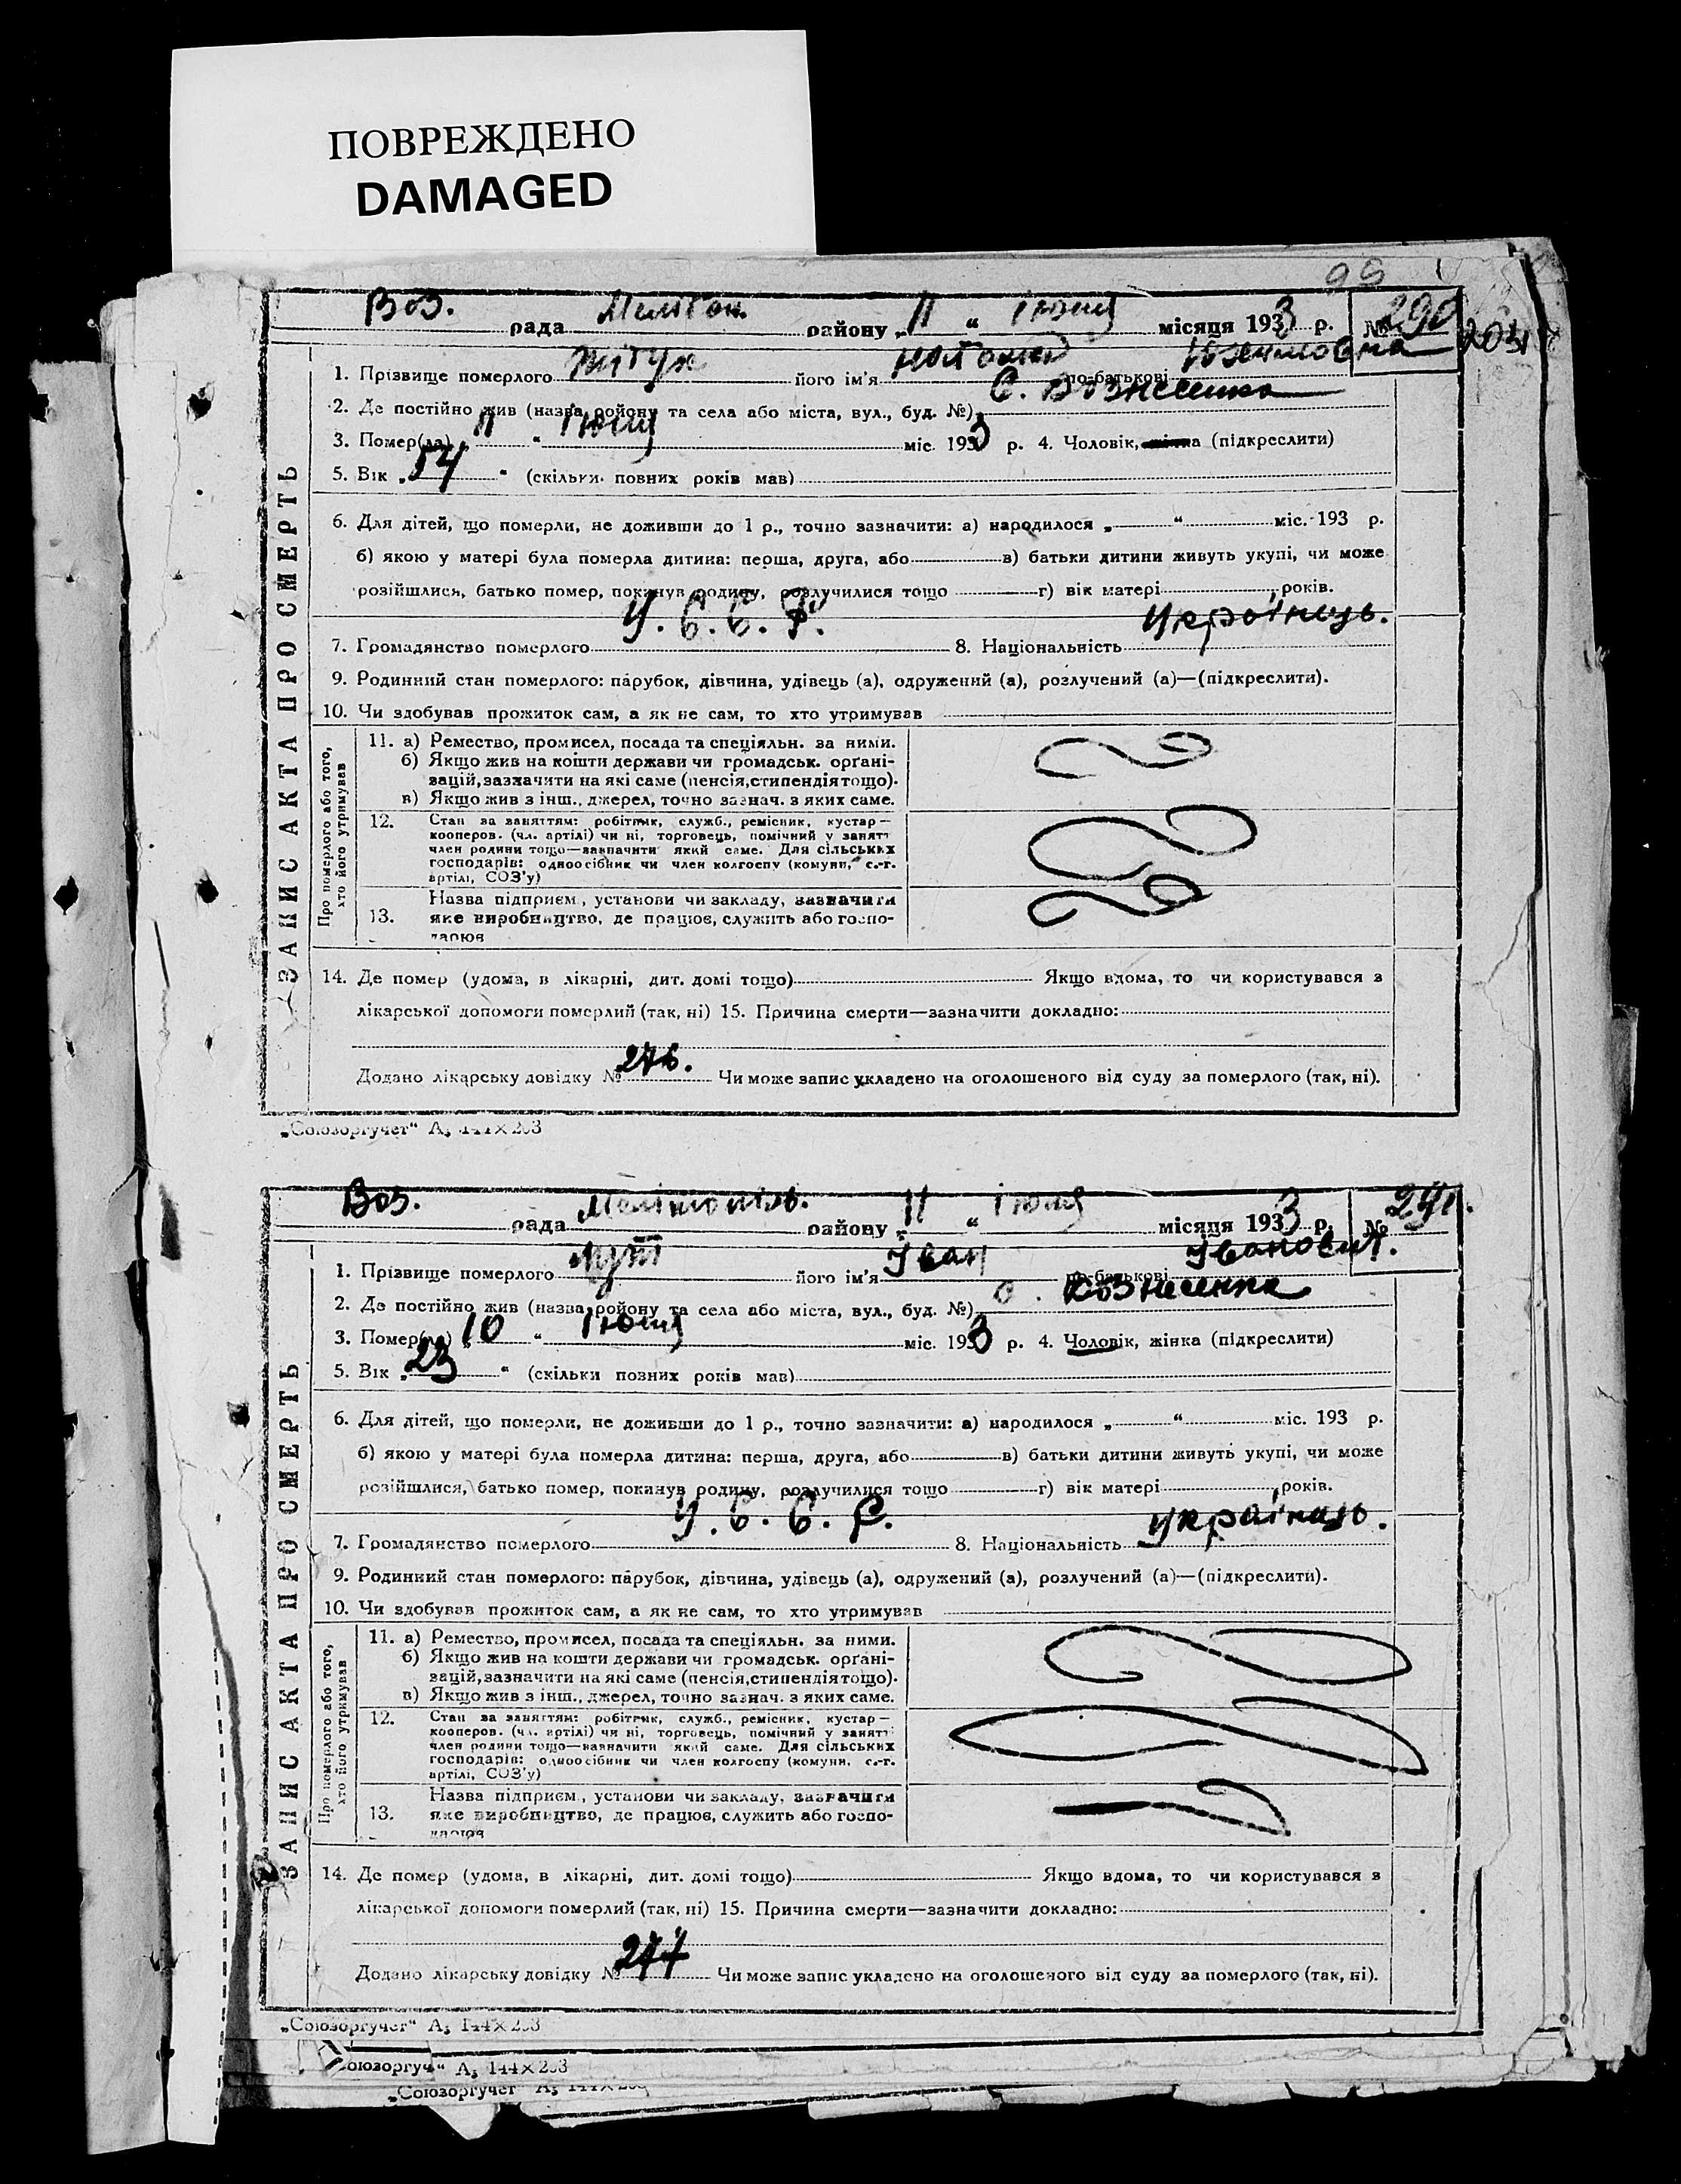 ПОВРЕЖДЕНО
DAMAGED
99
Воз. рада Меліт районy „11“ Июля місяця 1933 р. № 290
203
1. Прізвище померлого його ім'я по-батькові
2. Де постійно жив (назва району та села або міста, вул., буд. №) С. Вознесенка
3. Помер(ла) „11“ Июля міс. 1933 р. 4. Чоловік, жінка (підкреслити)
5. Вік „54“ (скільки повних років мав)
6. Для дітей, що померли, не доживши до 1 р., точно зазначити: а) народилося „ “ міс. 193 р.
б) якою у матері була померла дитина: перша, друга, або в) батьки дитини живуть укупі, чи може
розійшлися, батько помер, покинув родину, розлучилися тощо г) вік матері років.
7. Громадянство померлого У.С.С.Р. 8. Національність Українець.
9. Родинний стан померлого: парубок, дівчина, удівець (а), одружений (а), розлучений (а)—(підкреслити).
10. Чи здобував прожиток сам, а як не сам, то хто утримував
ЗАПИС АКТА ПРО СМЕРТЬ
Про померлого або того, хто його утримував
11. а) Ремество, промисел, посада та спеціяльн. за ними.
б) Якщо жив на кошти держави чи громадськ. органі-
зацій, зазначити на які саме (пенсія, стипендія тощо).
в) Якщо жив з інш., джерел, точно зазнач. з яких саме.
12. Стан за заняттям: робітник, служб., ремісник, кустар—
кооперов. (чл. артілі) чи ні, торговець, помічний у занятт
член родини тощо—зазначити який саме. Для сільських
господарів: одноосібник чи член колгоспу (комуни, с.-г.
артілі, СОЗ'у)
13. Назва підприєм., установи чи закладу, зазначити
яке виробництво, де працює, служить або госпо-
дарює
14. Де помер (удома, в лікарні, дит. домі тощо) Якщо вдома, то чи користувався з
лікарської допомоги померлий (так, ні) 15. Причина смерти—зазначити докладно:
Додано лікарську довідку № 276. Чи може запис укладено на оголошеного від суду за померлого (так, ні).
„Союзоргучет“ А₅ 144×203
Воз. рада Мелітопів. районy „11“ Июля місяця 1933 р. № 291.
1. Прізвище померлого його ім'я Іван по-батькові Іванович.
2. Де постійно жив (назва району та села або міста, вул., буд. №) с. Вознесенка
3. Помер(ла) „10“ Июля міс. 1933 р. 4. Чоловік, жінка (підкреслити)
5. Вік „23“ (скільки повних років мав)
6. Для дітей, що померли, не доживши до 1 р., точно зазначити: а) народилося „ “ міс. 193 р.
б) якою у матері була померла дитина: перша, друга, або в) батьки дитини живуть укупі, чи може
розійшлися, батько помер, покинув родину, розлучилися тощо г) вік матері років.
7. Громадянство померлого У.С.С.Р. 8. Національність українець.
9. Родинний стан померлого: парубок, дівчина, удівець (а), одружений (а), розлучений (а)—(підкреслити).
10. Чи здобував прожиток сам, а як не сам, то хто утримував
ЗАПИС АКТА ПРО СМЕРТЬ
Про померлого або того, хто його утримував
11. а) Ремество, промисел, посада та спеціяльн. за ними.
б) Якщо жив на кошти держави чи громадськ. органі-
зацій, зазначити на які саме (пенсія, стипендія тощо).
в) Якщо жив з інш., джерел, точно зазнач. з яких саме.
12. Стан за заняттям: робітник, служб., ремісник, кустар—
кооперов. (чл. артілі) чи ні, торговець, помічний у занятт
член родини тощо—зазначити який саме. Для сільських
господарів: одноосібник чи член колгоспу (комуни, с.-г.
артілі, СОЗ'у)
13. Назва підприєм., установи чи закладу, зазначити
яке виробництво, де працює, служить або госпо-
дарює
14. Де помер (удома, в лікарні, дит. домі тощо) Якщо вдома, то чи користувався з
лікарської допомоги померлий (так, ні) 15. Причина смерти—зазначити докладно:
Додано лікарську довідку № 277 Чи може запис укладено на оголошеного від суду за померлого (так, ні).
„Союзоргучет“ А₅ 144×203
оюзоргуч“ А₅ 144×203
„Союзоргучет А₅ 144×203